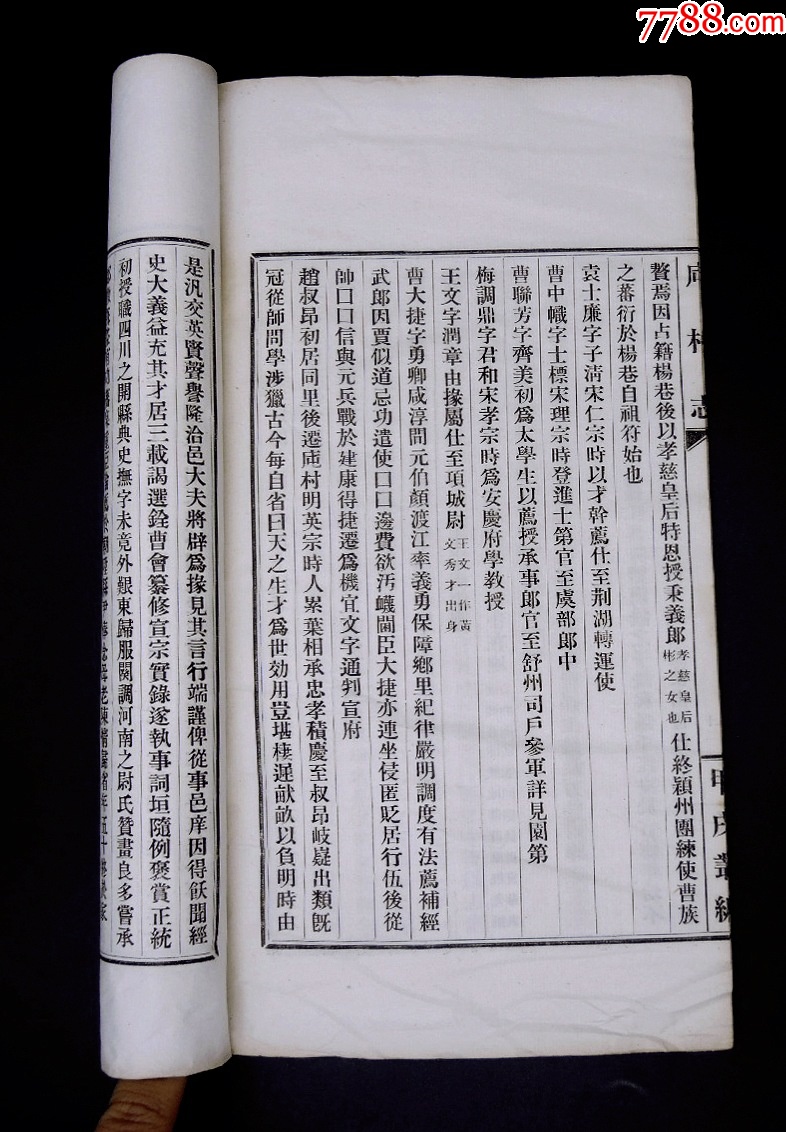 7788.com
村志
甲戌叢編
贅焉因占籍楊巷後以孝慈皇后特恩授秉義郎孝慈皇后彬之女也仕終潁州團練使曹族
之蕃衍於楊巷自祖符始也
袁士廉字子淸宋仁宗時以才幹薦仕至荆湖轉運使
曹中幟字士標宋理宗時登進士第官至虞部郎中
曹聯芳字齊美初爲太學生以薦授承事郎官至舒州司戶參軍詳見園第
梅調鼎字君和宋孝宗時爲安慶府學教授
王文字潤章由掾屬仕至項城尉王文一作黃文秀才出身
曹大捷字勇卿咸淳間元伯顏渡江率義勇保障鄉里紀律嚴明調度有法薦補經
武郎因賈似道忌功遣使口口邊費欲汚衊閫臣大捷亦連坐侵匿貶居行伍後從
帥口口信與元兵戰於建康得捷遷爲機宜文字通判宣府
趙叔昂初居同里後遷庉村明英宗時人累葉相承忠孝積慶至叔昂岐嶷出類旣
冠從師問學涉獵古今每自省曰天之生才爲世効用豈堪棲遲畎畝以負明時由
是汎交英賢聲譽隆洽邑大夫將辟爲掾見其言行端謹俾從事邑庠因得飫聞經
史大義益充其才居三載謁選銓曹會纂修宣宗實錄遂執事詞垣隨例褒賞正統
初授職四川之開縣典史撫字未竟外艱東歸服闋調河南之尉氏贊畫良多嘗承